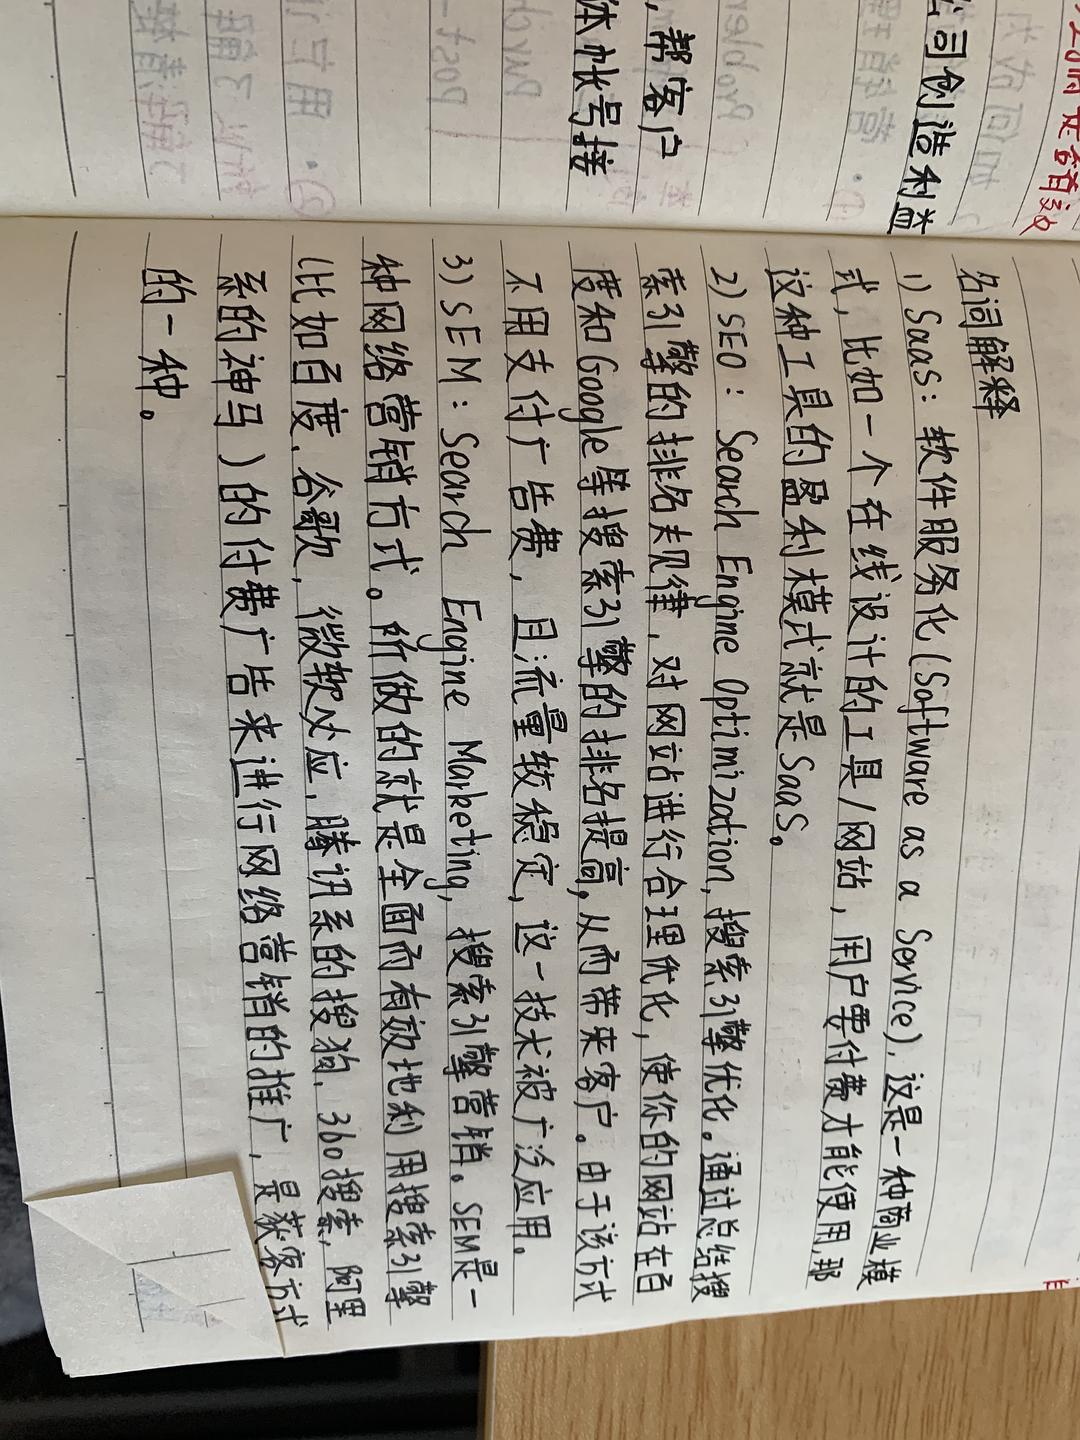 司创造利益
，帮客户
体帐号接
名词解释
1）SaaS：软件服务化（Software as a Service），这是一种商业模
式，比如一个在线设计的工具/网站，用户要付费才能使用，那
这种工具的盈利模式就是SaaS。
2）SEO：Search Engine Optimization，搜索引擎优化。通过总结搜
索引擎的排名规律，对网站进行合理优化，使你的网站在百
度和Google等搜索引擎的排名提高，从而带来客户。由于该方式
不用支付广告费，且流量较稳定，这一技术被广泛应用。
3）SEM：Search Engine Marketing，搜索引擎营销。SEM是一
种网络营销方式。所做的就是全面而有效地利用搜索引擎
（比如百度、谷歌，微软必应，腾讯系的搜狗，360搜索，阿里
系的神马）的付费广告来进行网络营销的推广，是获客方式
的一种。